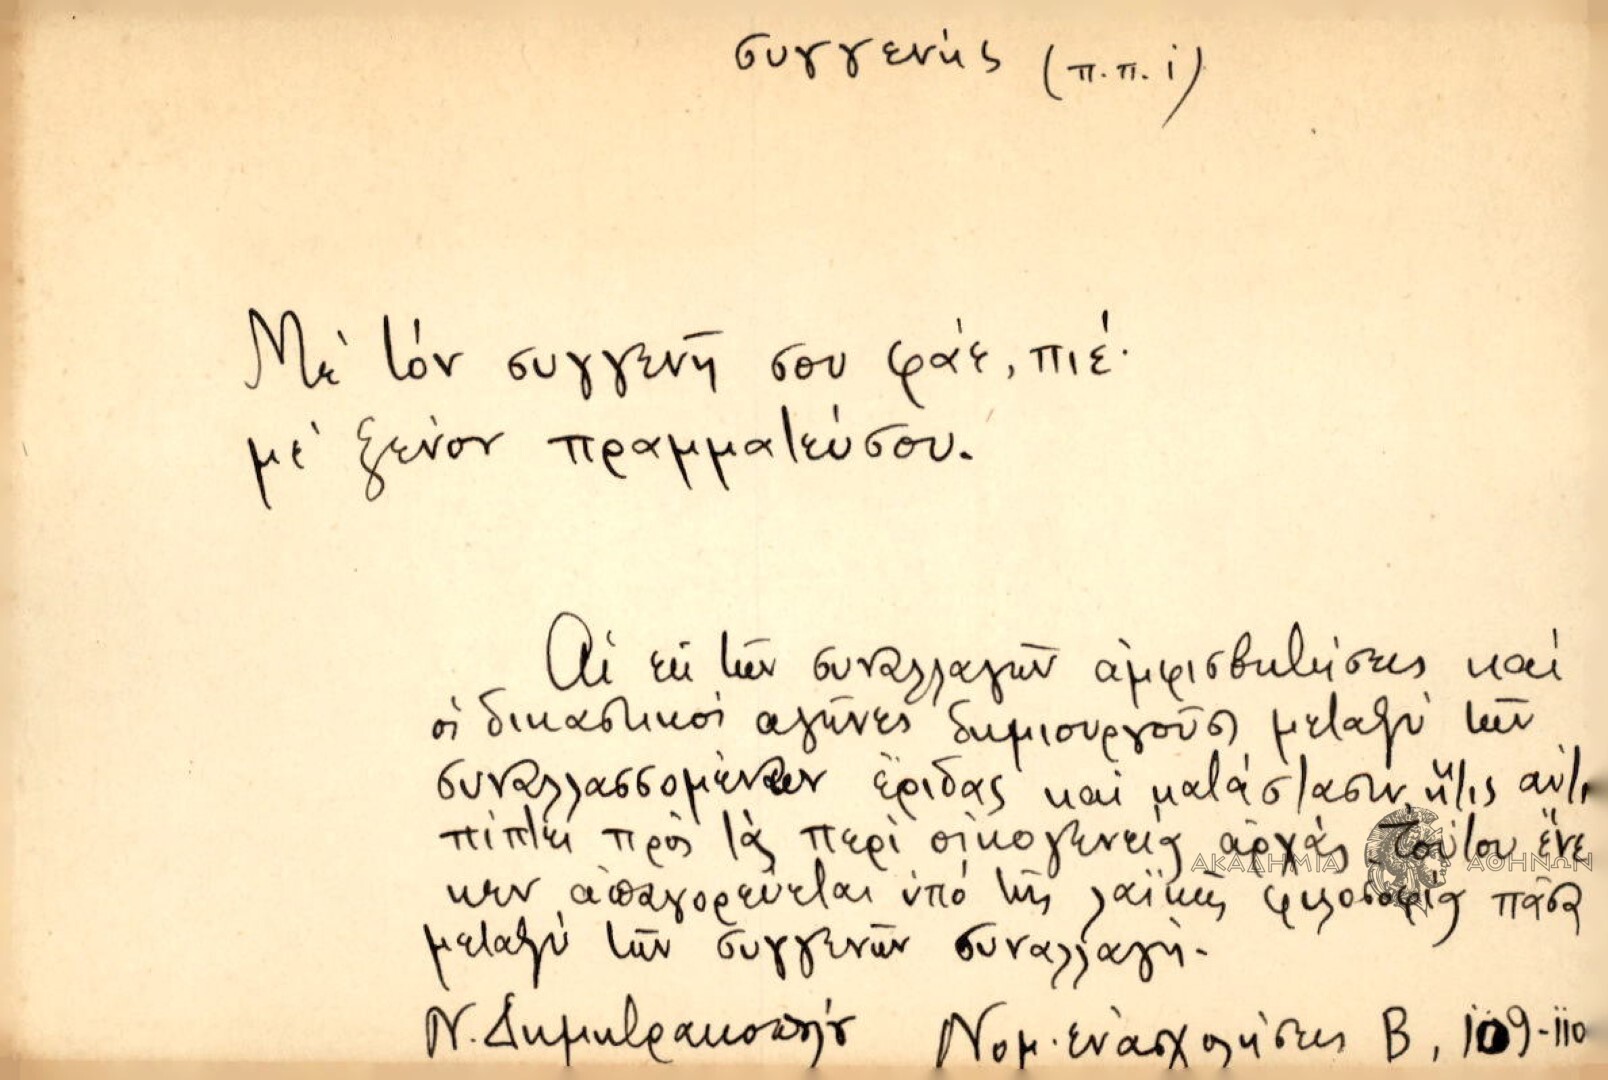 συγγενής (π.π. ἰ)
Μὲ τόν συγγενῆ σου φάε, πιέ·
μὲ ξένον πραμματεύσου.
Αἱ ἐκ τῶν συναλλαγῶν ἀμφισβητήσεις καί
οἱ δικαστικοί ἀγῶνες δημιουργοῦσι μεταξύ τῶν
συναλλασσομένων ἔριδας καί κατάστασιν, ἥτις ἀντι
πίπτει πρός τάς περί οἰκογενείας ἀρχάς. Τούτου ἕνε
κεν ἀπαγορεύεται ὑπό τῆς λαϊκῆς φιλοσοφίας πᾶσα
μεταξύ τῶν συγγενῶν συναλλαγή.
Ν. Δημητρακοπούλου Νομ. ἐνασχολήσεις Β, 109-110
ΑΚΑΔΗΜΙΑ ΑΘΗΝΩΝ